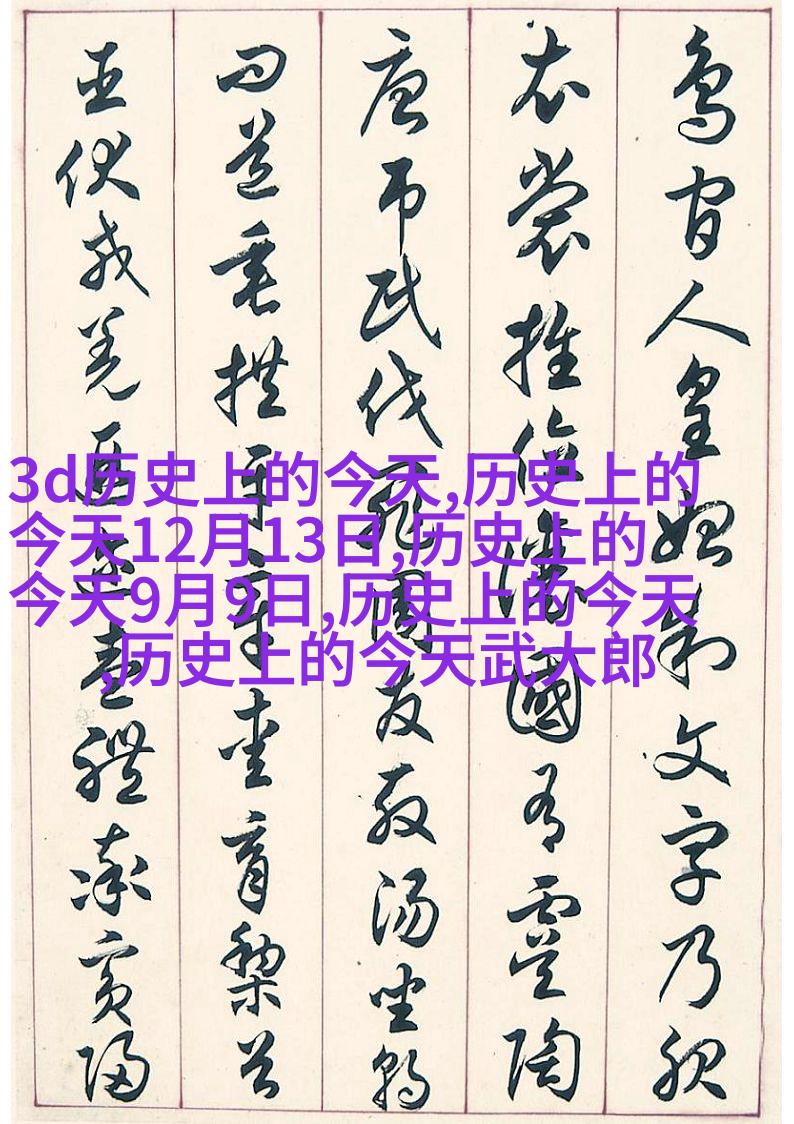 鳥官人皇始制文字乃服
衣裳推位讓國有虞陶
唐吊民伐罪周發殷湯坐朝
問道垂拱平章愛育黎首
臣伏戎羌遐邇壹體率賓歸
3d历史上的今天,历史上的
今天12月13日,历史上的
今天9月9日,历史上的今天
,历史上的今天武大郎